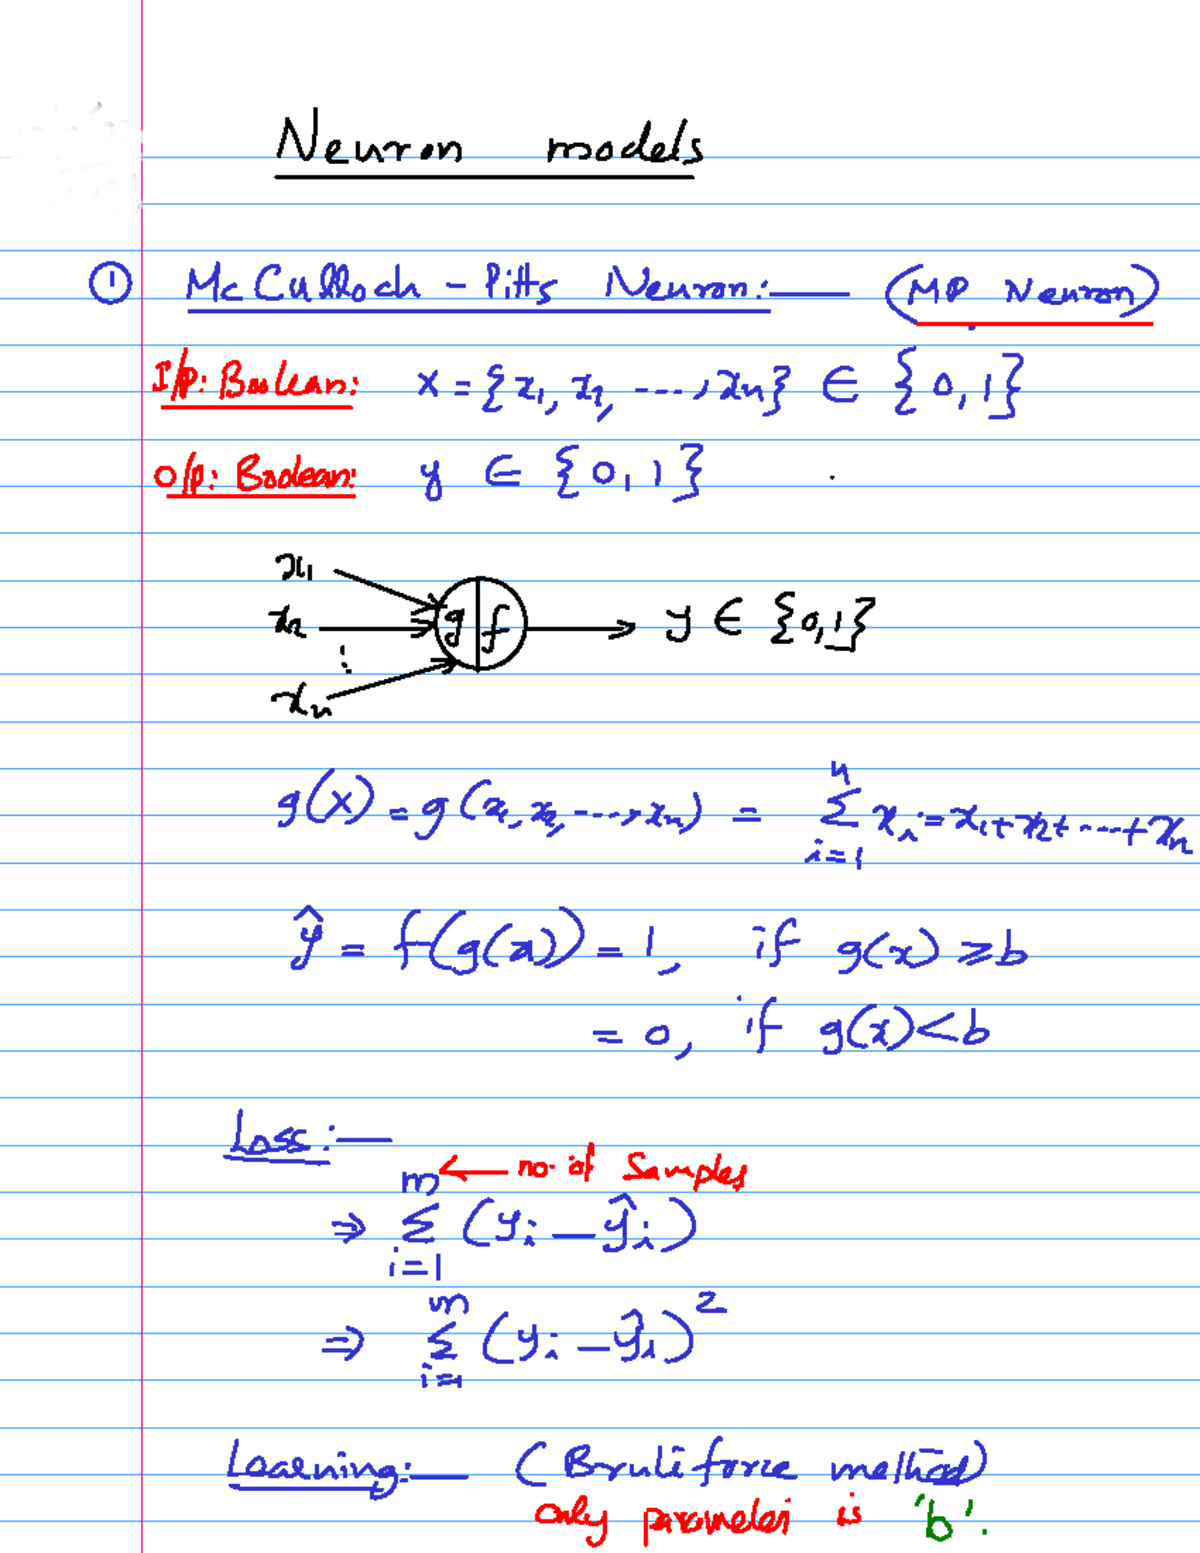 Neuron models
① McCulloch - Pitts Neuron:— (MP Neuron)
I/p: Boolean: X = {x₁, x₂, ----, xn} ∈ {0,1}
O/p: Boolean: y ∈ {0,1}
x₁
x₂ g|f → y ∈ {0,1}
⋮
xn
g(x) = g(x₁, x₂, ----, xn) = n Σ i=1 xi = x₁+x₂+----+xn
ŷ = f(g(x)) = 1, if g(x) ≥ b
= 0, if g(x) < b
Loss:—
m ← no. of Samples
⇒ Σ (yi – ŷi)
i=1
m
⇒ Σ (yi – ŷi)²
i=1
Learning:— (Bruteforce method)
only parameter is 'b'.